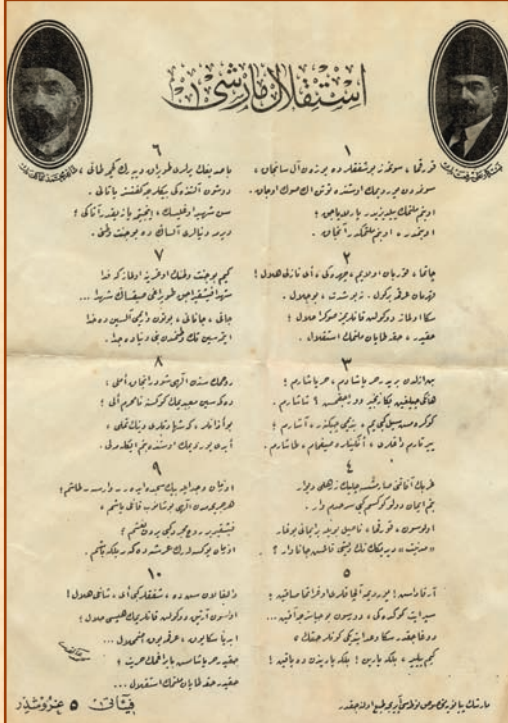 استقلال مارشی
١
قورقما، سونمز بو شفقلرده يوزن آل سانجاق،
سونمه‌دن يوردمك اوستنده توتن اك صوك اوجاق.
او بنم ملتمك ييلديزيدر، پارلاياجق؛
او بنمدر، او بنم ملتمكدر آنجاق.
٢
چاتما، قوربان اولايم، چهره‌كی، ای نازلی هلال!
قهرمان عرقمه برگول.. نه بو شدت، بو جلال.
سكا اولماز دوكولن قانلريمز صوكرا حلال؛
حقيدر، حقه طاپان ملتمك استقلال.
٣
بن ازلدن بريدر حر ياشادم، حر ياشارم؛
هانكی چيلغين بكا زنجير ووراجقمش؟ شاشارم.
كوكره‌مش سيل كبی يم، بنديمی چيكنر، آشارم؛
ييرتارم داغلری، انكينلره صيغمام، طاشارم.
٤
غربك آفاقنی صارمشسه چليك زرهلی ديوار
بنم ايمان دولو كوكسم كبی سرحدم وار.
اولوسون، قورقما، ناصل بويله بر ايمانی بوغار
«مدنيت» ديديكك تك ديشی قالمش جاناوار؟
٥
آرقاداش! يورديمه آلچاقلری اوغراتما صاقين؛
سپر ايت كوكده‌كی، دورسون بو حياسزجه آقين...
دوغاجقدر سكا وعد ايتديكی كونلر حقك
كيم بيلير، بلكه يارين! بلكه يارين‌دن ده ياقين!
٦
باصديغك يرلری طوپراق دييه‌رك كچمه طانی،
دوشون آلتنده‌كی بيكلرجه كفنسز ياتانی.
سن شهيد اوغليسك، اينجيتمه يازيقدر آتاكی؛
ويرمه دنيالری آلساك ده بو جنت وطنی.
٧
كيم بو جنت وطنك اوغرينه اولماز كه فدا
شهدا فيشقيراجق طوپراغی صيقساك شهدا...
جانی، جانانی، بوتون واريمی آلسين ده خدا
ايتمه‌سين تك وطنمدن بنی دنياده جدا.
٨
روحمك سندن الهی شودر آنجاق املی؛
دكمه‌سين معبديمك كوكسنه نامحرم الی؛
بو اذانلر، كه شهادتلری دينك تملی،
ابدی يورديمك اوستنده بنم ايكله‌ملی.
٩
او زمان وجد ايله بيك سجده ايدر وارسه طاشم؛
هر جريحه‌مدن الهی بوشانوب قانلی ياشم،
فيشقيرير روح مجرد كبی يردن نعشم؛
او زمان يوكسله‌رك عرشه دكر بلكه باشم.
١٠
دالغالان سن ده، شفقلر كبی ای شانلی هلال!
اولسون آرتيق دوكولن قانلريمك هپسی حلال؛
ابديا سكا يوق، عرقمه يوق اضمحلال...
حقيدر حر ياشامش بايراغمك حريت؛
حقيدر حقه طاپان ملتمك استقلال...
فيآتی ٥ غروشدر